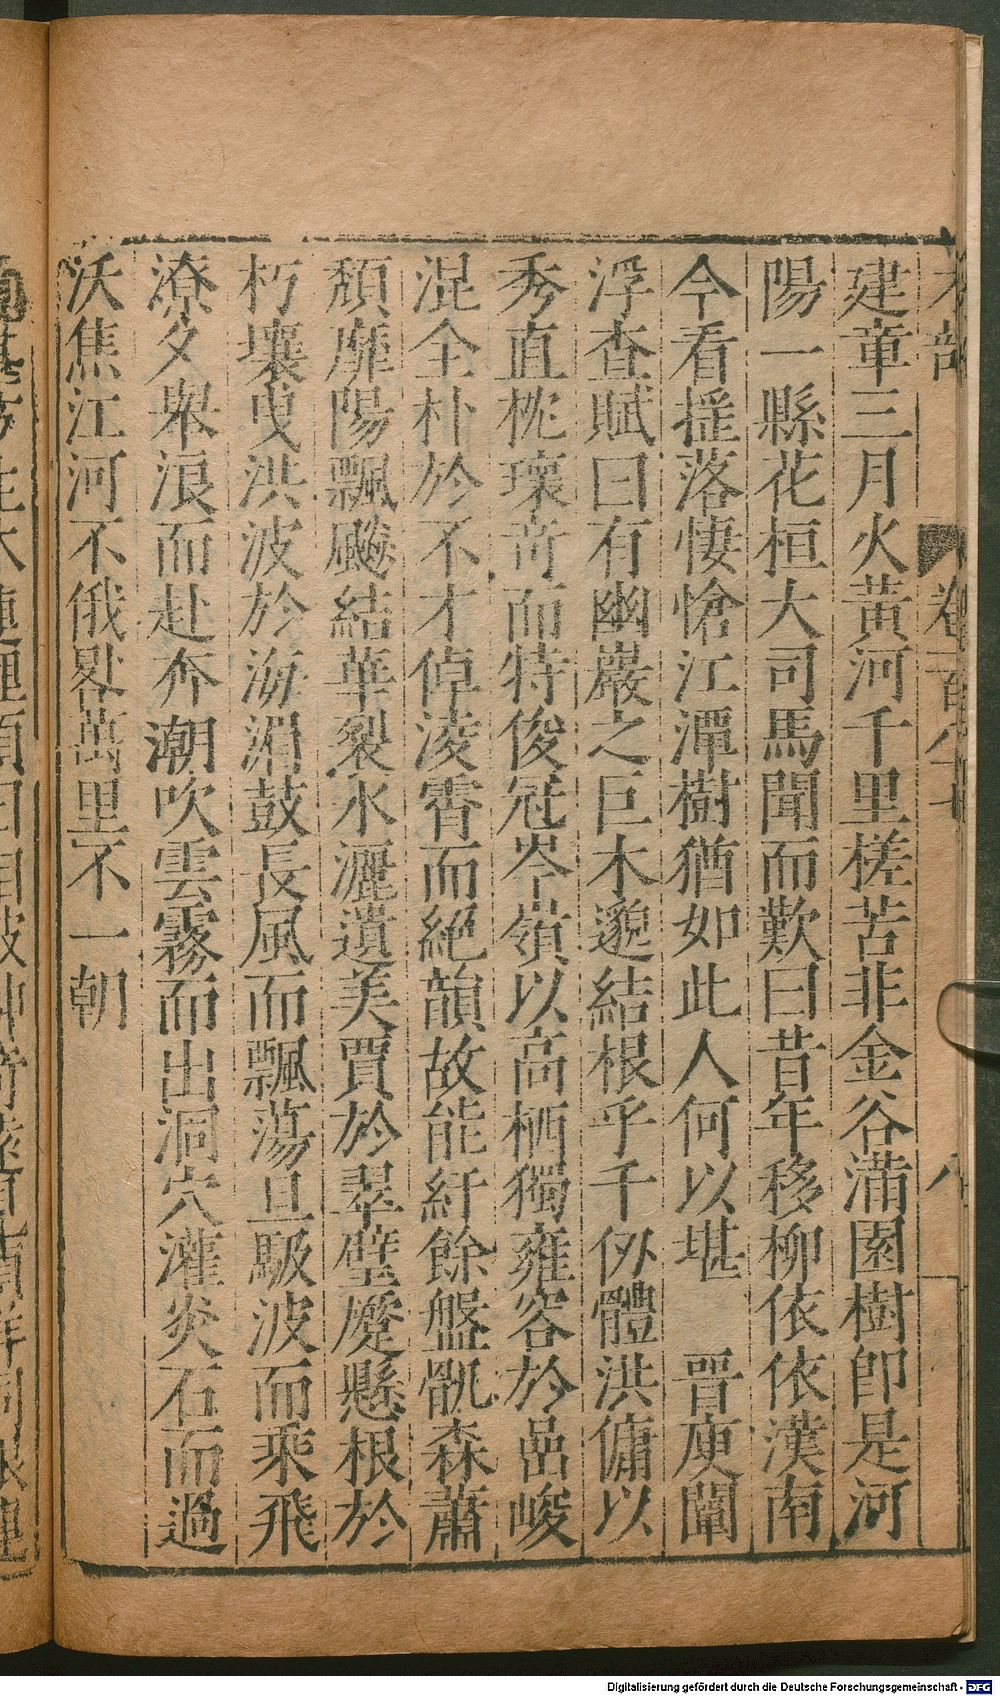 木部 卷一百八十七 八
建章三月火黃河千里槎苦非金谷滿園樹即是河
陽一縣花桓大司馬聞而歎曰昔年移柳依依漢南
今看揺落悽愴江潭樹猶如此人何以堪 晉庾闡
浮查賦曰有幽巖之巨木邈結根乎千仞體洪傭以
秀直枕瓌奇而特俊冠岑嶺以高栖獨雍容於嵒峻
混全朴於不才倬淩霄而絕韻故能紆餘盤骩森蕭
頹靡陽飄飈結華裂水灑遺美賈於翠璧蹙懸根於
朽壤叓洪波於海湄鼓長風而飄蕩且駊波而乘飛
潦夊舉浪而赴奔潮吹雲霧而出洞穴灌炎石而過
沃焦江河不俄晷萬里不一朝
Digitalisierung gefördert durch die Deutsche Forschungsgemeinschaft - DFG